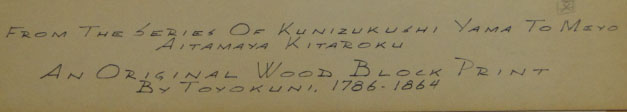 From The Series Of Kunizukushi Yama To Meyo
Aitamaya Kitaroku
An Original Wood Block Print
By Toyokuni, 1786-1864